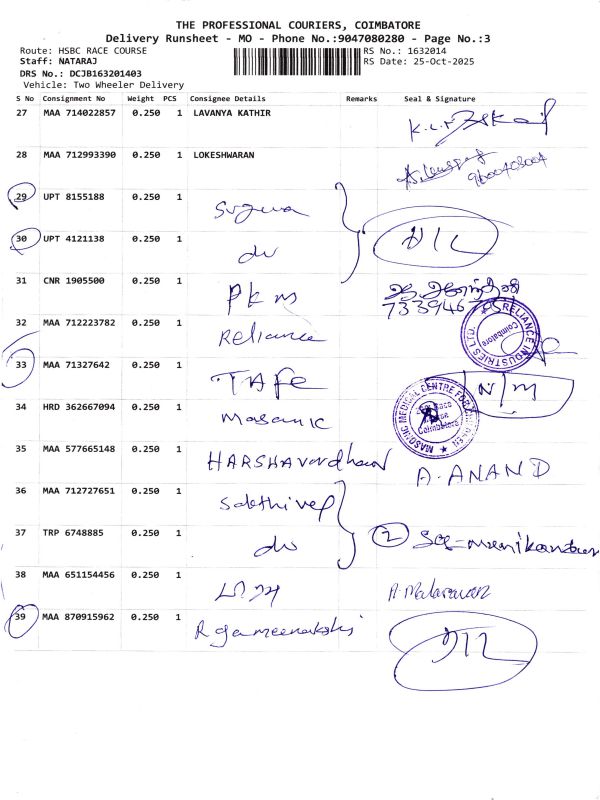 THE PROFESSIONAL COURIERS, COIMBATORE
Delivery Runsheet - MO - Phone No.:9047080280 - Page No.:3
Route: HSBC RACE COURSE RS No.: 1632014
Staff: NATARAJ RS Date: 25-Oct-2025
DRS No.: DCJB163201403
Vehicle: Two Wheeler Delivery
S No Consignment No Weight PCS Consignee Details Remarks Seal & Signature
27 MAA 714022857 0.250 1 LAVANYA KATHIR
28 MAA 712993390 0.250 1 LOKESHWARAN
29 UPT 8155188 0.250 1
30 UPT 4121138 0.250 1
31 CNR 1905500 0.250 1 PKM
32 MAA 712223782 0.250 1 Reliance
RELIANCE INDUSTRIES LTD.
Coimbatore
33 MAA 71327642 0.250 1 TAFE N/M
34 HRD 362667094 0.250 1 Masonic
MASONIC MEDICAL CENTRE FOR CHILDREN
Coimbatore
35 MAA 577665148 0.250 1 HARSHAVardhan A. ANAND
36 MAA 712727651 0.250 1 Sakthivel
37 TRP 6748885 0.250 1 2
38 MAA 651154456 0.250 1
39 MAA 870915962 0.250 1